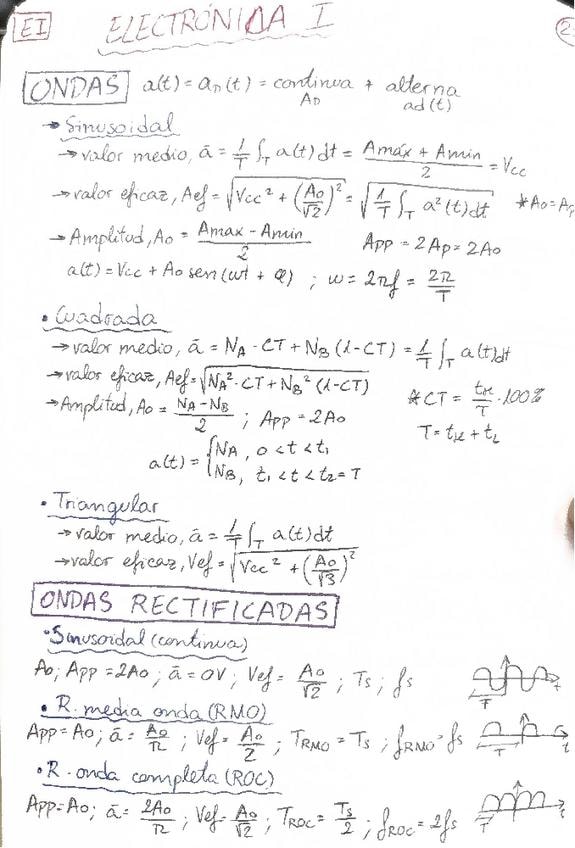 EI ELECTRÓNICA I 2
ONDAS a(t) = a_D(t) = continua + alterna
A_D a_d(t)
→ Sinusoidal
→ valor medio, ā = 1/T ∫_T a(t) dt = (Amáx + Amin)/2 = Vcc
→ valor eficaz, Aef = √(Vcc² + (Ao/√2)²) = √(1/T ∫_T a²(t) dt) *Ao = Ap
→ Amplitud, Ao = (Amax - Amin)/2 App = 2Ap = 2Ao
a(t) = Vcc + Ao sen(ωt + φ) ; ω = 2πf = 2π/T
• Cuadrada
→ valor medio, ā = N_A · CT + N_B (1-CT) = 1/T ∫_T a(t) dt
→ valor eficaz, Aef = √(N_A² · CT + N_B² (1-CT))
*CT = t_H/T · 100%
→ Amplitud, Ao = (N_A - N_B)/2 ; App = 2Ao
T = t_H + t_L
a(t) = { N_A, 0 < t < t₁
N_B, t₁ < t < t₂ = T
• Triangular
→ valor medio, ā = 1/T ∫_T a(t) dt
→ valor eficaz, Vef = √(Vcc² + (Ao/√3)²)
ONDAS RECTIFICADAS
• Sinusoidal (continua)
Ao; App = 2Ao ; ā = 0V ; Vef = Ao/√2 ; Ts ; fs
T t
• R. media onda (RMO)
App = Ao ; ā = Ao/π ; Vef = Ao/2 ; T_RMO = Ts ; f_RMO = fs
T t
• R. onda completa (ROC)
App = Ao; ā = 2Ao/π ; Vef = Ao/√2 ; T_ROC = Ts/2 ; f_ROC = 2fs
T t